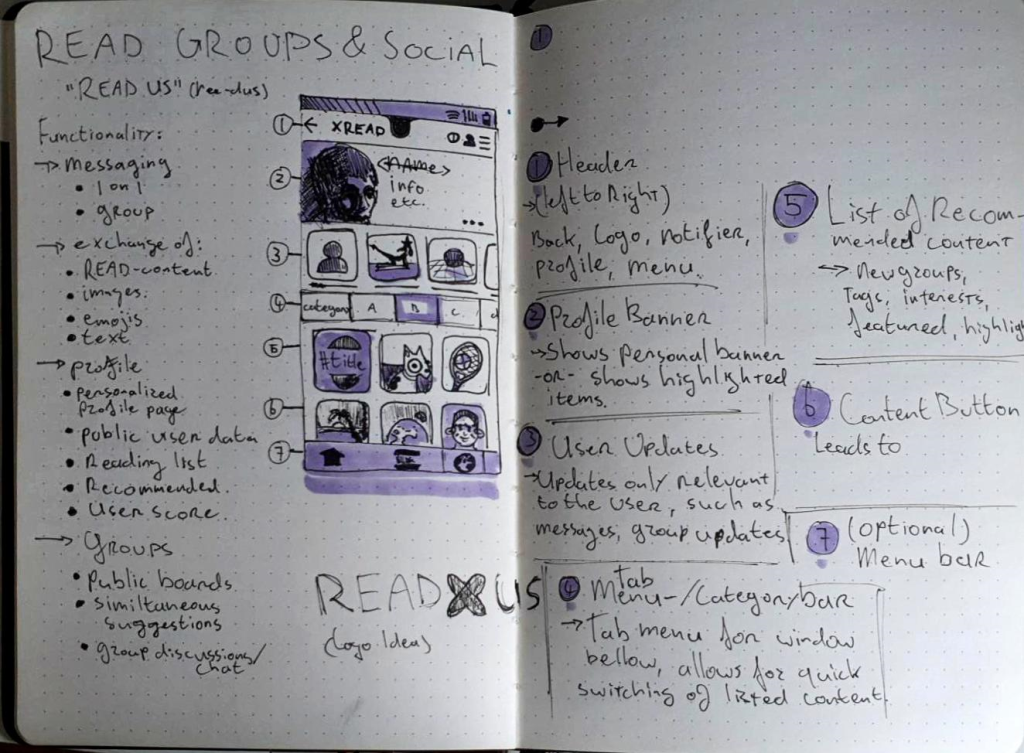 READ GROUPS & SOCIAL
"READ US" (ree-dus)
Functionality:
→ messaging
• 1 on 1
• group
→ exchange of:
• READ-content
• images
• emojis
• text
→ profile
• personalized
profile page
• public user data
• Reading list
• Recommended.
• User score
→ Groups
• Public boards
• similtaneous
suggestions
• group discussions/
chat
1
← XREAD
2
<NAMe>
info
etc.
...
3
4
category A B C
5
#title
6
7
READXUS
(Logo Idea)
1
1 Header
→ (left to Right)
Back, Logo, notifier,
profile, menu.
2 Profile Banner
→ Shows personal banner
-or- shows highlighted
items.
3 User Updates
→ Updates only relevant
to the user, such as
messages, group updates
4 Menu-/Category bar
Tab
→ Tab menu for window
bellow, allows for quick
switching of listed content
5 List of Recom-
mended content
↔ New groups,
Tags, interests,
featured, highlig
6 Content Button
Leads to
7 (optional)
Menu bar